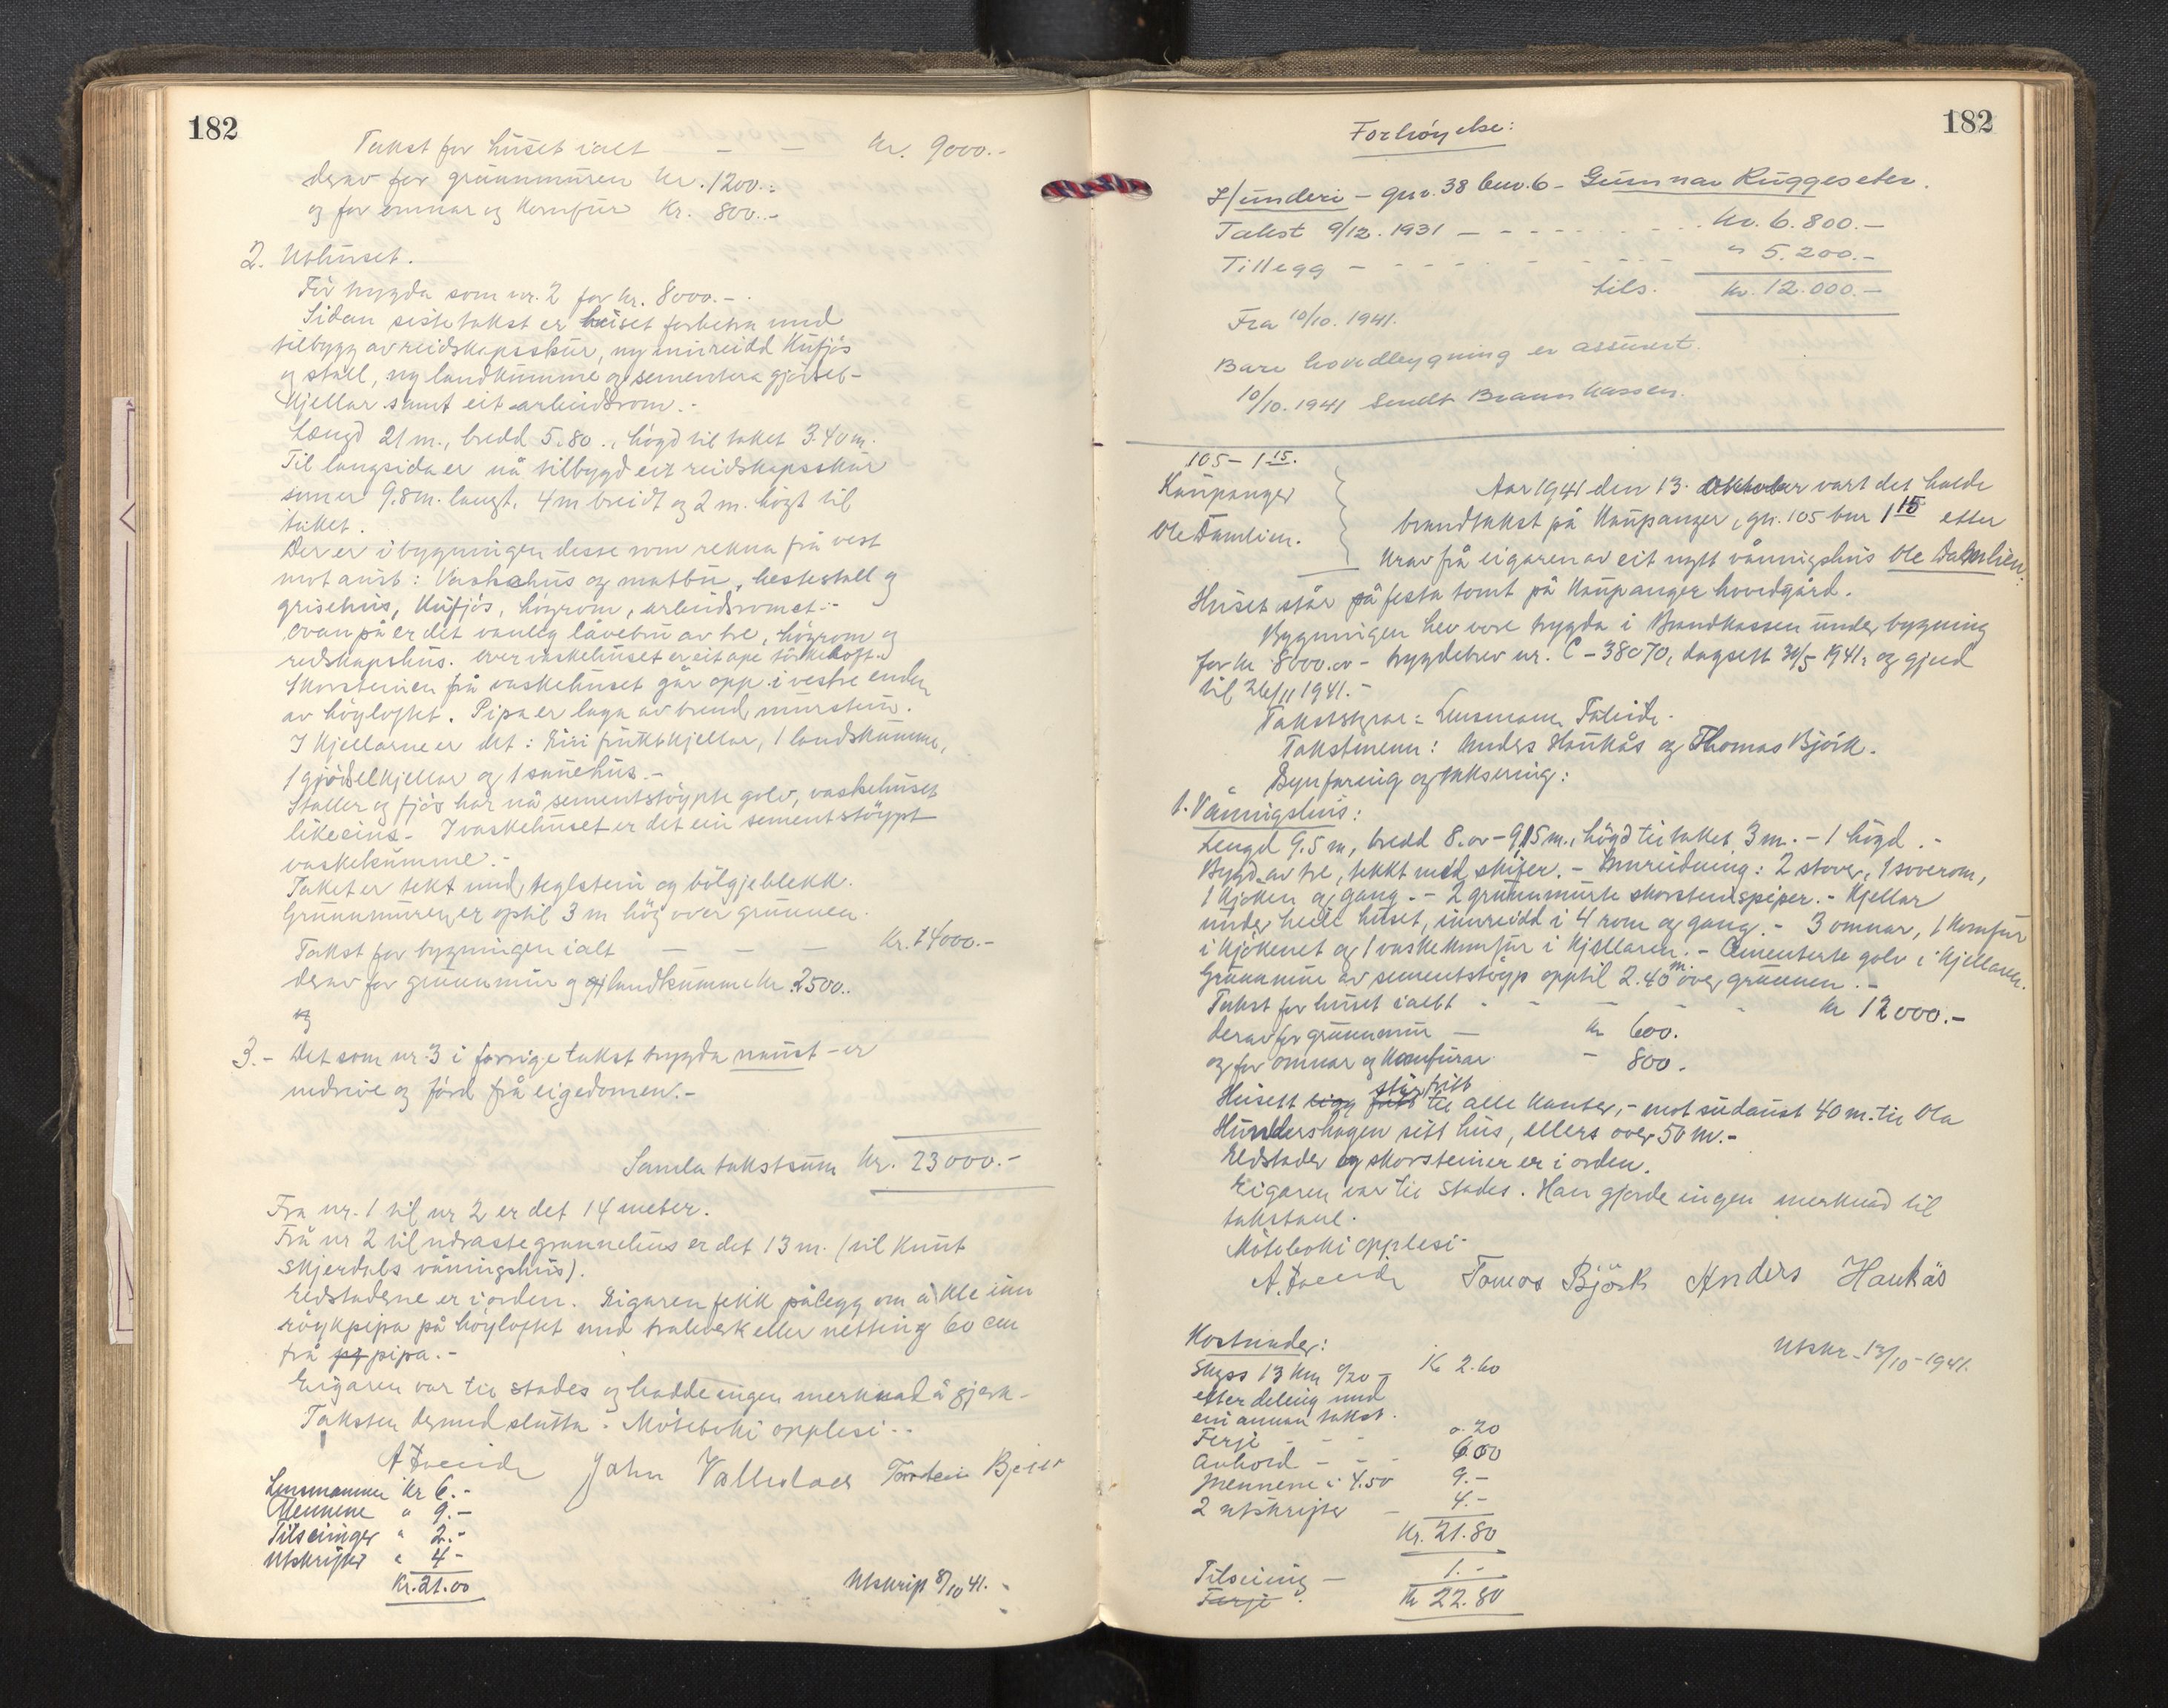 182
Takst for huset ialt — — Kr. 9000.-
derav for grunnmuren Kr. 1200.-
og for omnar og Komfur Kr. 800.-
2. Uthuset.
Før trygda som nr. 2 for kr. 8000.-
Sidan siste takst er huset forbetra med
tilbygg av reidskapsskur, ny innreidd Kufjøs
og stall, ny landkumme og sementera gjødsel-
Kjellar samt eit arbeidsrom.-
Længd 21 m., bredd 5.80., høgd til taket 3.40 m.
Til langsida er nå tilbygd eit reidskapsskur
som er 9.8 m. langt, 4 m breidt og 2 m. høgt til
taket.
Der er i bygningen desse rom rekna frå vest
mot aust: Vaskehus og matbu, hestestall og
grisehus, Kufjøs, högrom, arbeidsromet.-
Ovan på er det vanleg låvebru av tre, högrom og
redskapshus. Over vaskehuset er eit ope törkeloft.
Skorsteinen frå vaskehuset går opp i vestre enden
av höyloftet. Pipa er laga av brend murstein.
I Kjellarne er det: Ein fruktkjellar, 1 landkumme,
1 gjödselkjellar og 1 sauehus.-
Staller og fjös har nå sementstöypte golv, vaskehuset
likeeins.- I vaskehuset er det ein sementstöypt
vaskekumme.-
Taket er tekt med teglstein og bölgjeblekk.
Grunnmuren er optil 3 m hög over grunnen.
Takst for bygningen ialt — — — Kr. 14000.-
derav for grunnmur og landkumme Kr. 2500.-
og
3.- Det som nr. 3 i forrige takst trygda naust - er
nedrive og förd frå eigedomen.-
Samla takstsum Kr. 23000.-
Fra nr. 1 til nr 2 er det 14 meter.
Frå nr 2 til næraste grannehus er det 13 m. (til Knut
Skjerdals våningshus).
Eldstaderne er i orden. Eigaren fekk pålegg om å kle inn
röykpipa på höyloftet med tralverk eller netting 60 cm
frå pipa.-
Eigaren var til stades og hadde ingen merknad å gjera-
Taksten dermed slutta.- Möteboki opplesi.-
John Torstein
Lensmannen Kr 6.-
Mennene " 9.-
Tilseiinger " 2.-
Utskrifter " 4-
Kr. 21.00
Utskrip 8/10 41.
182
Forhöyelse:
Hunderi - gnr. 38 bnr. 6 - Gunnar Ruggeseter.
Takst 9/12. 1931 - - - - - - - - Kr. 6.800.-
Tillegg - - - - - - - - " 5.200.-
tils. Kr. 12.000.-
Fra 10/10. 1941.
Bare hovedbygning er assurert.
10/10. 1941 Sendt Brannkassen.
105 - 1 15.
Kaupanger
Ole Damlien.
Aar 1941 den 13. Oktober vart det halde
brandtakst på Kaupanger, gn. 105 bnr 1 15 etter
krav frå eigaren av eit nytt vånnigshus Ole Damlien.
Huset står på festa tomt på Kaupanger hovedgård.
Bygningen hev vore trygda i Brandkassen under bygning
for kr 8000.00 - trygdebrev nr. C - 38070, dagsett 31/5 1941, og gjeld
til 26/11 1941.-
Takststyrar: Lensmann
Takstmenn: Anders Haukås og Thomas Björk.
Synfaring og taksering:
1. Vånnigshus:
Lengd 9.5 m, bredd 8.00 - 9.15 m., högd til taket 3 m. - 1 högd.-
Bygd av tre, tekkt med skifer.- Innreidning: 2 stover, 1 soverom,
1 Kjöken og gang.- 2 grunnmurte skorsteinspiper.- Kjellar
under heile huset, innreidd i 4 rom og gang.- 3 omnar, 1 Komfur
i Kjökenet og 1 vaskekomfur i Kjellaren.- Cementerte golv i Kjellaren.
Grunnmur av sementstöyp opptil 2.40 m. over grunnen.-
Takst for huset ialt - - - - Kr 12000.-
derav for grunnmur — Kr 600.
og for omnar og Komfurar - 800.
Husett ligg fritt står fritt til alle kanter,- mot sudaust 40 m. til Ola
Hundershagen sitt hus, ellers over 50 m.-
Eldstader og skorsteiner er i orden.
Eigaren var til stades. Han gjorde ingen merknad til
takstane.
Möteboki opplesi-
Tomas Björk Anders Haukås
Kostnader:
Utskr. 13/10 - 1941.
Skyss 13 Km 0/20 - Kr 2.60
etter deling med
ein annan takst.
Ferje - - - 0.20
Avhold - - - 6.00
Mennene á 4.50 9.-
2 utskrifter - 4.-
Kr. 21.80
Tilseiing — 1.-
Ferje
Kr 22.80